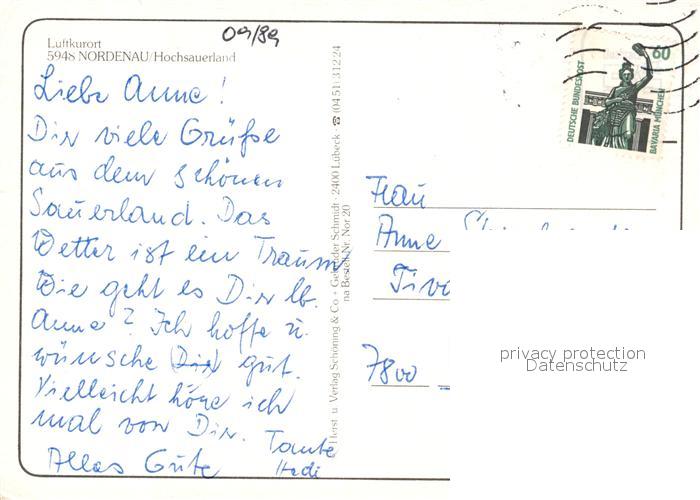 09/89
Luftkurort
5948 NORDENAU/Hochsauerland
Liebe Anne!
Dir viele Grüße
aus dem schönen
Sauerland. Das
Wetter ist ein Traum
Wie geht es Dir lb.
Anne? Ich hoffe u.
wünsche Dir gut.
Vielleicht höre ich
mal von Dir. Tante
Alles Gute
Herst. u. Verlag Schöning & Co + Gebrüder Schmidt · 2400 Lübeck ☎ (0451) 31224
na Bestell-Nr. Nor 20
60
DEUTSCHE BUNDESPOST
BAVARIA MÜNCHEN
Frau
Anne
7800
privacy protection
Datenschutz